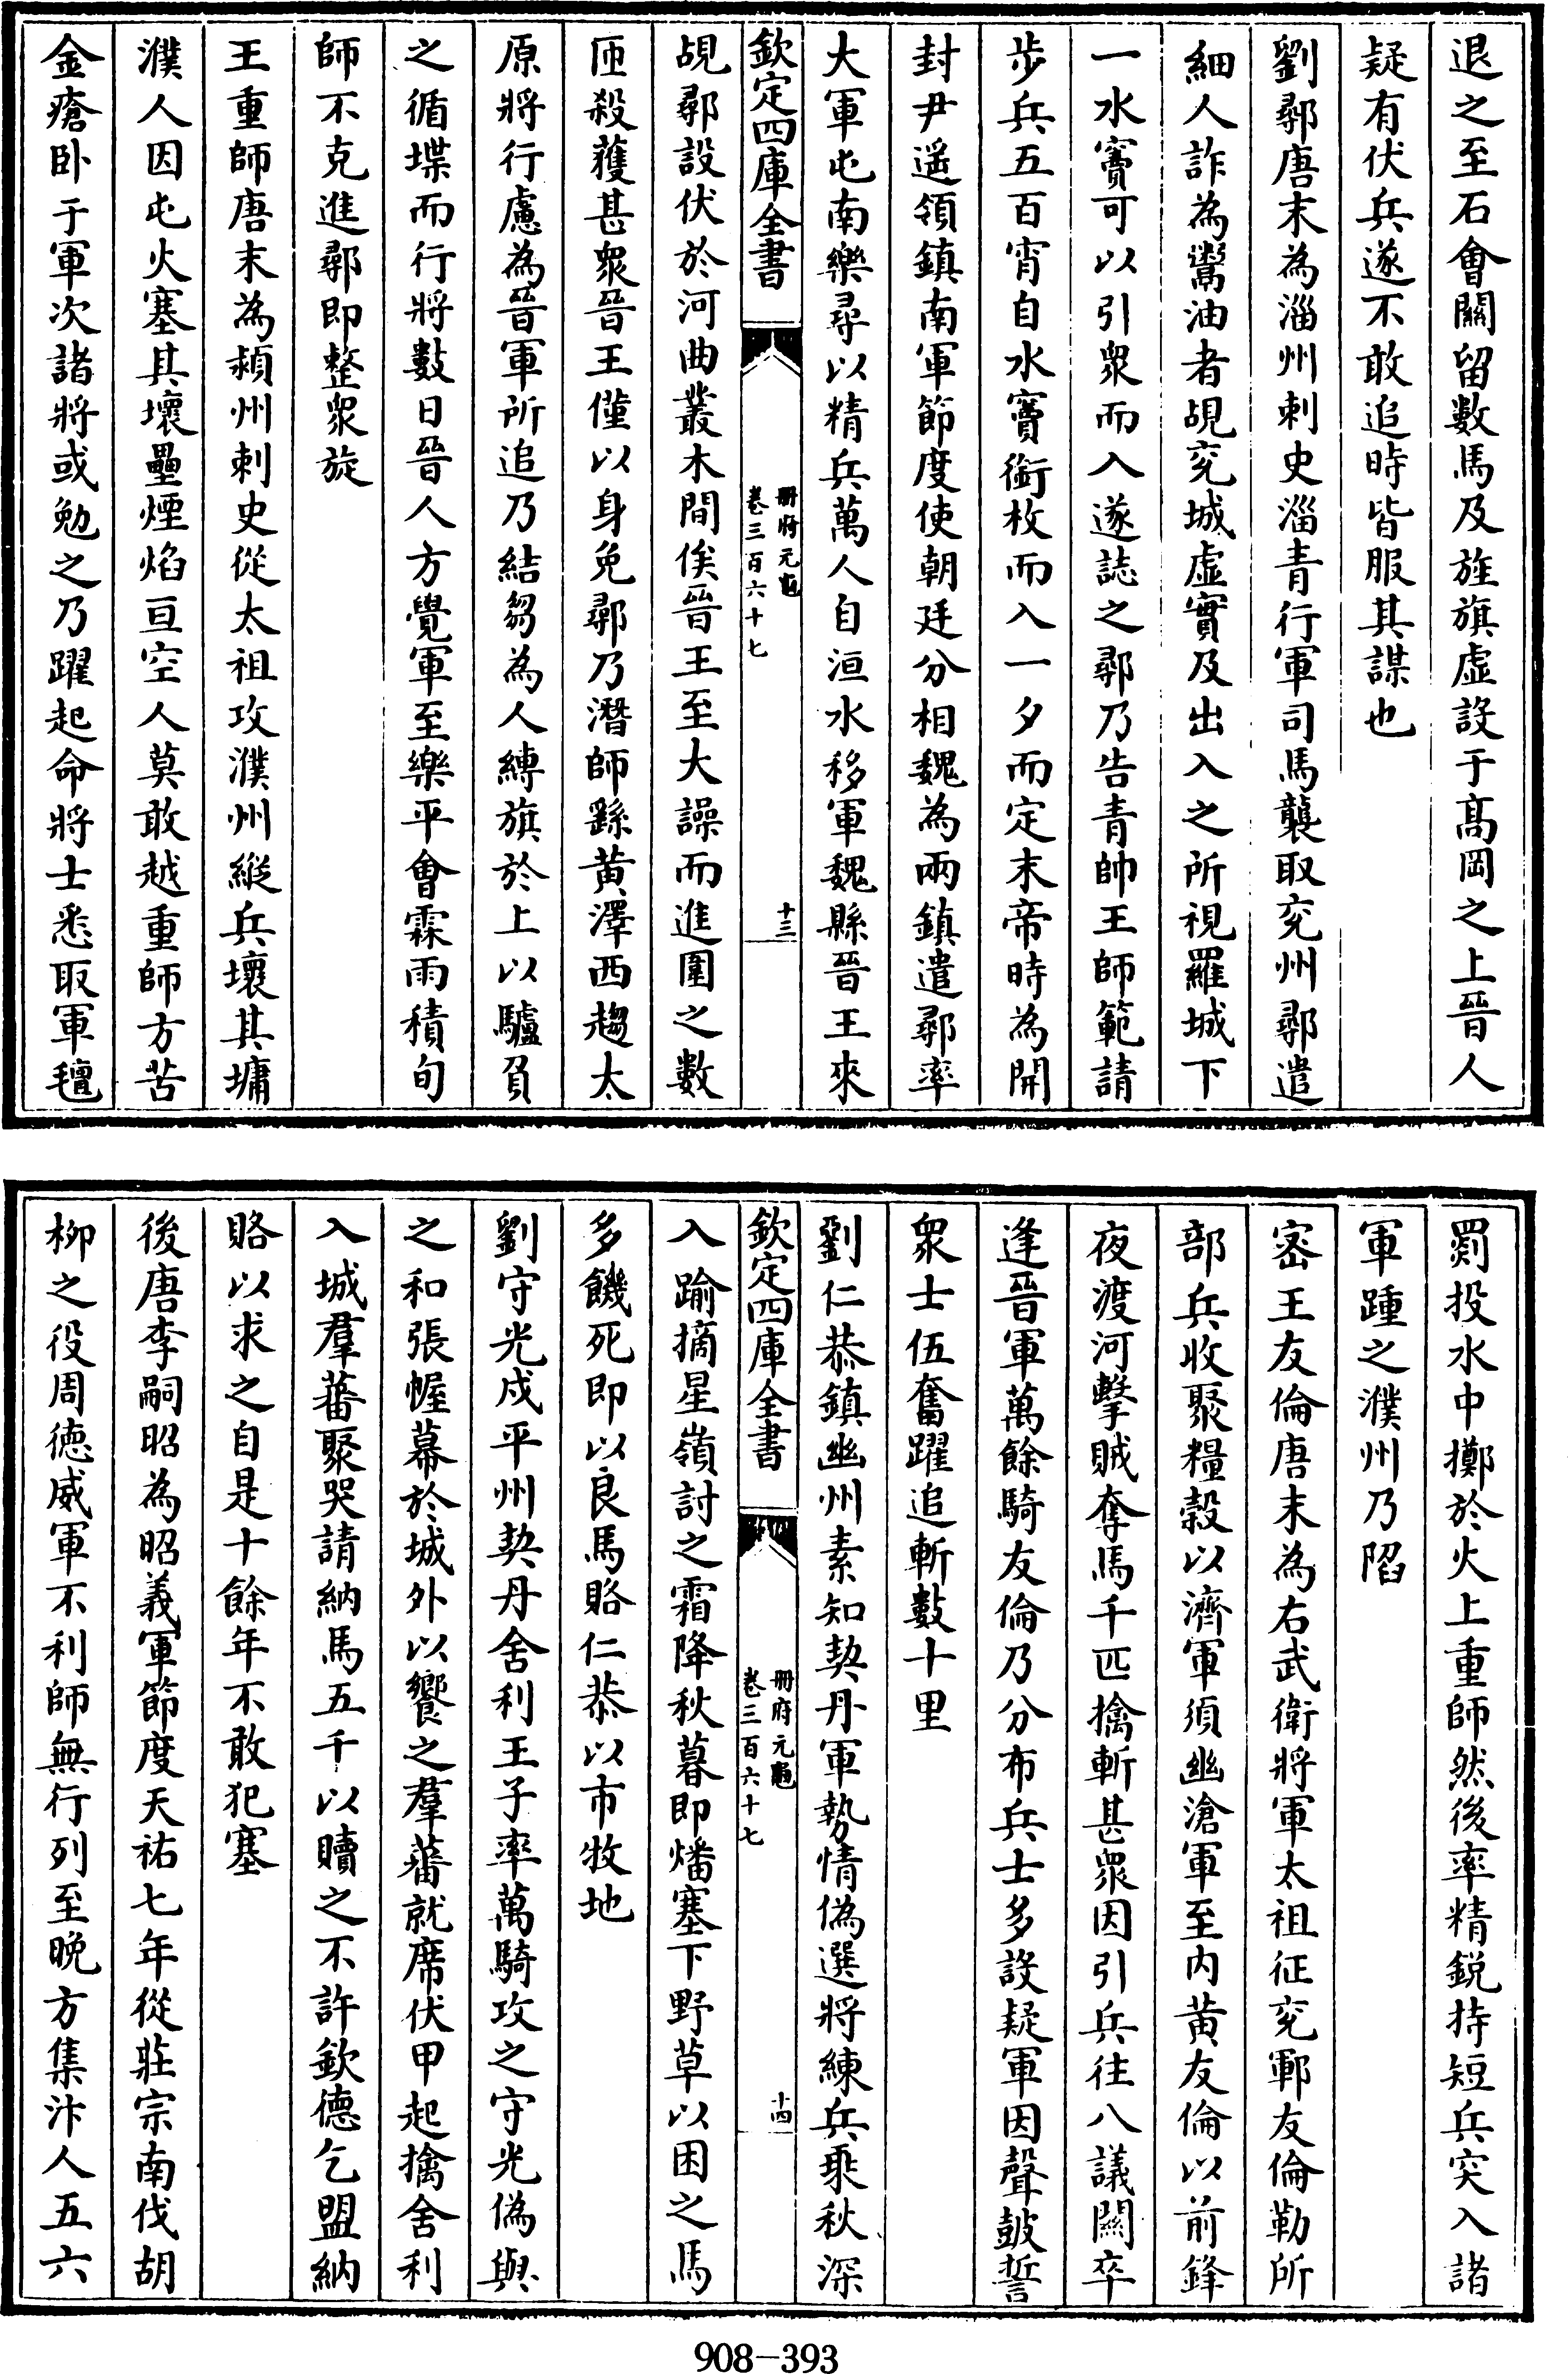 退之至石會關留數馬及旌旗虚設于髙岡之上晉人
疑有伏兵遂不敢追時皆服其謀也
劉鄩唐末為淄州刺史淄青行軍司馬襲取兖州鄩遣
細人詐為鬻油者覘兖城虚實及出入之所視羅城下
一水竇可以引衆而入遂誌之鄩乃告青帥王師範請
步兵五百宵自水竇銜枚而入一夕而定末帝時為開
封尹遥領鎮南軍節度使朝廷分相魏為兩鎮遣鄩率
大軍屯南樂尋以精兵萬人自洹水移軍魏縣晉王來
欽定四庫全書
冊府元龜
卷三百六十七
十三
覘鄩設伏於河曲叢木間俟晉王至大譟而進圍之數
匝殺獲甚衆晉王僅以身免鄩乃潛師繇黄澤西趨太
原將行慮為晉軍所追乃結芻為人縛旗於上以驢負
之循堞而行將數日晉人方覺軍至樂平會霖雨積旬
師不克進鄩即整衆旋
王重師唐末為潁州刺史從太祖攻濮州縱兵壞其墉
濮人因屯火塞其壞壘煙焰亘空人莫敢越重師方苦
金瘡卧于軍次諸將或勉之乃躍起命將士悉取軍氊
罽投水中擲於火上重師然後率精鋭持短兵突入諸
軍踵之濮州乃䧟
宻王友倫唐末為右武衛將軍太祖征兖鄆友倫勒所
部兵收聚糧穀以濟軍須幽滄軍至内黄友倫以前鋒
夜渡河擊賊奪馬千匹擒斬甚衆因引兵往八議關卒
逢晉軍萬餘騎友倫乃分布兵士多設疑軍因聲鼓誓
衆士伍奮躍追斬數十里
劉仁恭鎮幽州素知契丹軍勢情偽選將練兵乘秋深
欽定四庫全書
冊府元龜
卷三百六十七
十四
入踰摘星嶺討之霜降秋暮即燔塞下野草以困之馬
多饑死即以良馬賂仁恭以市牧地
劉守光戍平州契丹舍利王子率萬騎攻之守光偽與
之和張幄幕於城外以饗之羣蕃就席伏甲起擒舍利
入城羣蕃聚哭請納馬五千以贖之不許欽德乞盟納
賂以求之自是十餘年不敢犯塞
後唐李嗣昭為昭義軍節度天祐七年從莊宗南伐胡
柳之役周徳威軍不利師無行列至晚方集汴人五六
908-393